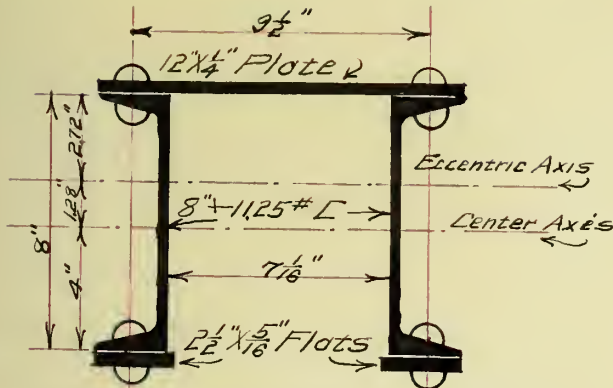 9 1/2"
12"X1/4" Plate
2.72"
Eccentric Axis
1.28"
8"-11.25# C
Center Axés
8"
4"
7 1/16"
2 1/2"X5/16" Flats